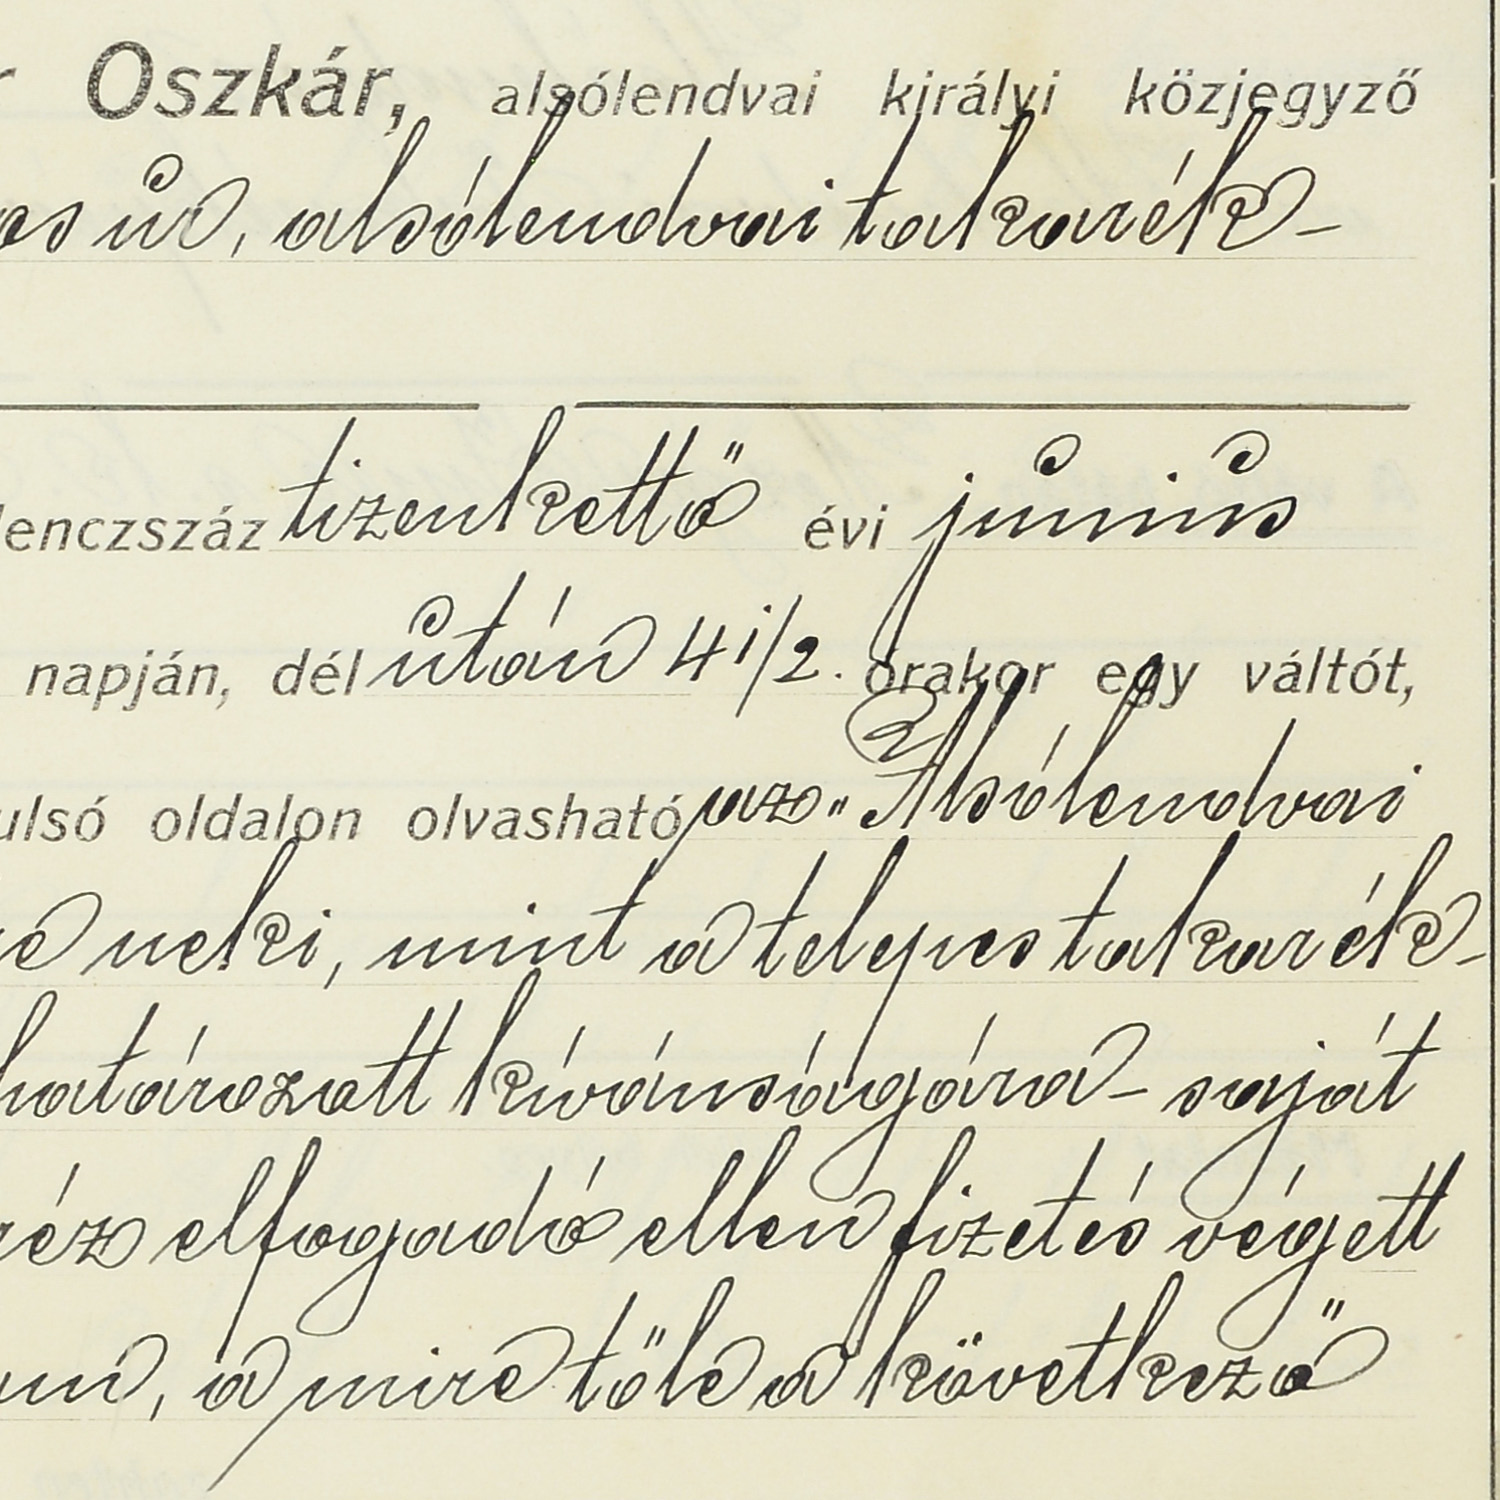 Oszkár, alsólendvai királyi közjegyző
úr, alsólendvai takarék-
lenczszáz tizenkettő évi június
napján, dél után 4 1/2. órakor egy váltót,
ulsó oldalon olvasható, az „Alsólendvai
neki, mint a telepes takarék-
határozatt kívánságára - saját
elfogadó ellen fizetés végett
, a mire tőle a következő